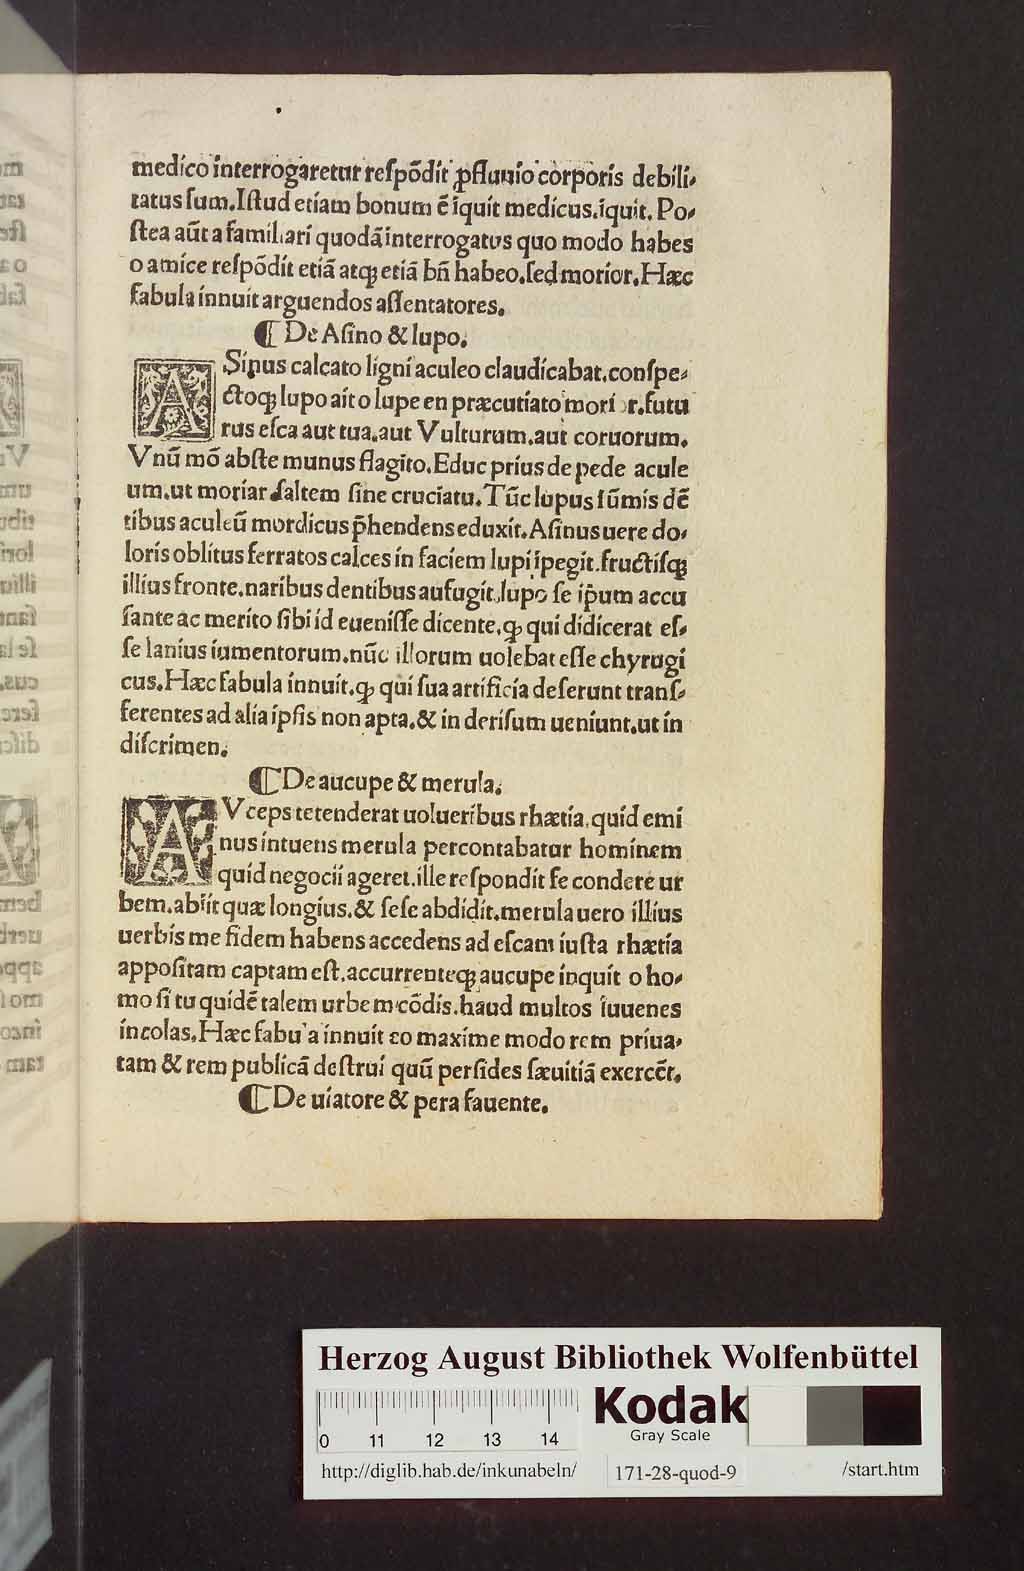 medico interrogaretur reſpōdit ꝓfluuio corporis debili-
tatus ſum. Iſtud etiam bonum ē īquit medicus. īquit. Po-
ſtea aūt a familiari quodā interrogatus quo modo habes
o amice reſpōdit etiā atqꝫ etiā bñ habeo. ſed morior. Hæc
fabula innuit arguendos aſſentatores.
¶ De Aſino & lupo.
ASinus calcato ligni aculeo claudicabat. conſpe-
ctoqꝫ lupo ait o lupe en præ cutiato morior. futu
rus eſca aut tua. aut Vulturum. aut coruorum.
Vnū mō abſte munus flagito. Educ prius de pede acule
um. ut moriar ſaltem ſine cruciatu. Tūc lupus ſūmis dē
tibus aculeū mordicus p̄hendens eduxit. Aſinus uere do-
loris oblitus ferratos calces in faciem lupi īpegit. fractiſqꝫ
illius fronte. naribus dentibus aufugit. lupo ſe ip̄um accu
ſante ac merito ſibi id eueniſſe dicente. ꝙ qui didicerat eſ-
ſe lanius iumentorum. nūc illorum uolebat eſſe chyrugi
cus. Hæc fabula innuit. ꝙ qui ſua artificia deſerunt tranſ-
ferentes ad alia ipſis non apta. & in deriſum ueniunt. ut in
diſcrimen.
¶ De aucupe & merula.
AVceps tetenderat uolueribus rhætia. quid emi
nus intuens merula percontabatur hominem
quid negocii ageret. ille reſpondit ſe condere ur
bem. abiit quæ longius. & ſeſe abdidit. merula uero illius
uerbis me fidem habens accedens ad eſcam iuſta rhætia
appoſitam captam eſt. accurrenteqꝫ aucupe inquit o ho-
mo ſi tu quidē talem urbem cōdis. haud multos iuuenes
incolas. Hæc fabula innuit eo maxime modo rem priua-
tam & rem publicā deſtrui quū perſides ſæuitiā exercēt.
¶ De uiatore & pera fauente.
Herzog August Bibliothek Wolfenbüttel
Kodak
Gray Scale
0 11 12 13 14
http://diglib.hab.de/inkunabeln/ 171-28-quod-9 /start.htm